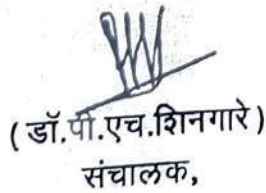 ( डॉ.पी.एच.शिनगारे )
संचालक,